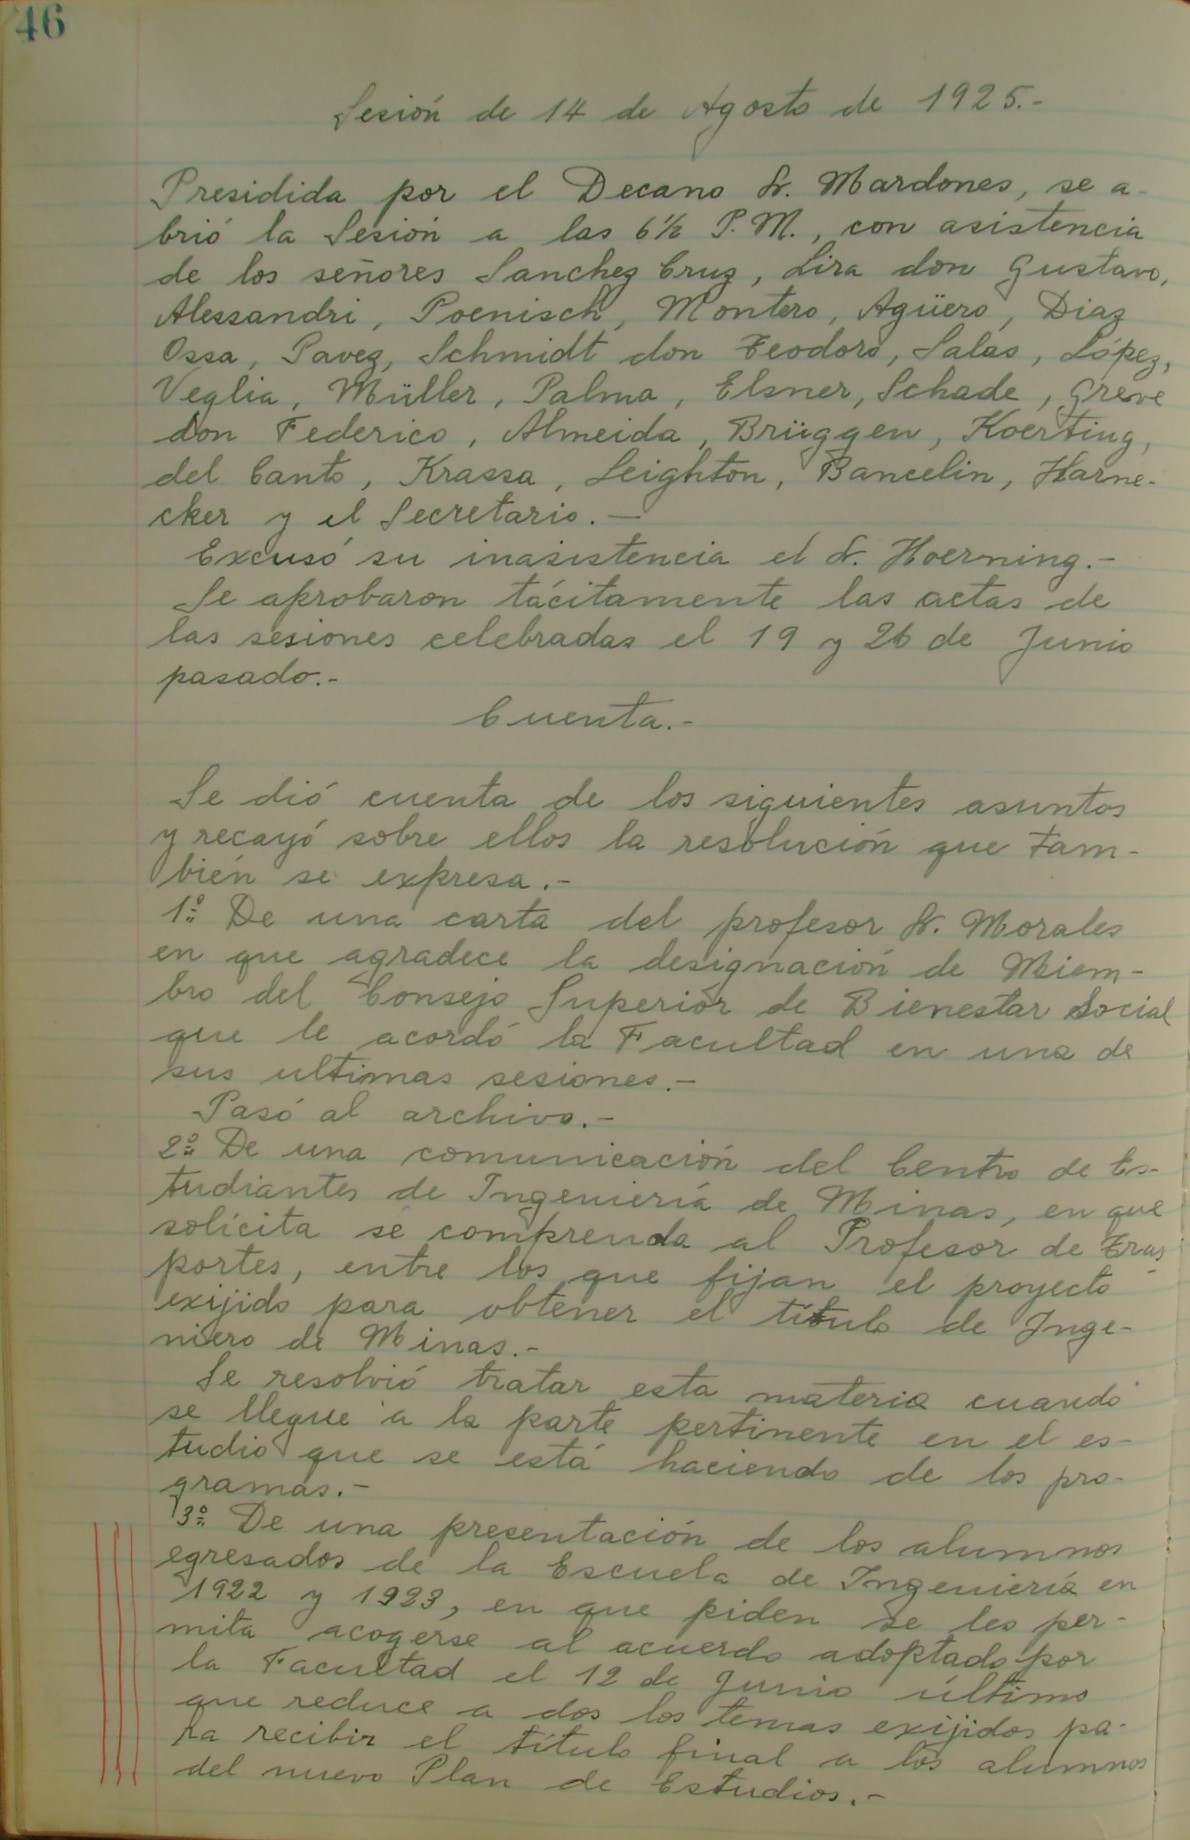 46
Sesión de 14 de Agosto de 1925.-
Presidida por el Decano Sr. Mardones, se a-
brió la Sesión a las 6½ P.M., con asistencia
de los señores Sanchez Cruz, Lira don Gustavo,
Alessandri, Poenisch, Montero, Agüero, Diaz
Ossa, Pavez, Schmidt don Teodoro, Salas, López,
Veglia, Müller, Palma, Elsner, Schade, Greve
don Federico, Almeida, Brüggen, Koerting,
del Canto, Krassa, Leighton, Bancelin, Harne-
cker y el Secretario.-
Excusó su inasistencia el Sr. Hoerning.-
Se aprobaron tácitamente las actas de
las sesiones celebradas el 19 y 26 de Junio
pasado.-
Cuenta.-
Se dió cuenta de los siguientes asuntos
y recayó sobre ellos la resolución que tam-
bién se expresa.-
1º De una carta del profesor Sr. Morales
en que agradece la designación de Miem-
bro del Consejo Superior de Bienestar Social
que le acordó la Facultad en una de
sus ultimas sesiones.-
Pasó al archivo.-
2º De una comunicación del Centro de Es-
tudiantes de Ingeniería de Minas, en que
solícita se comprenda al Profesor de Tras-
portes, entre los que fijan el proyecto
exijido para obtener el título de Inge-
niero de Minas.-
Se resolvió tratar esta materia cuando
se llegue a la parte pertinente en el es-
tudio que se está haciendo de los pro-
gramas.-
3º De una presentación de los alumnos
egresados de la Escuela de Ingeniería en
1922 y 1923, en que piden se les per-
mita acogerse al acuerdo adoptado por
la Facultad el 12 de Junio último
que reduce a dos los temas exijidos pa-
ra recibir el título final a los alumnos
del nuevo Plan de Estudios.-